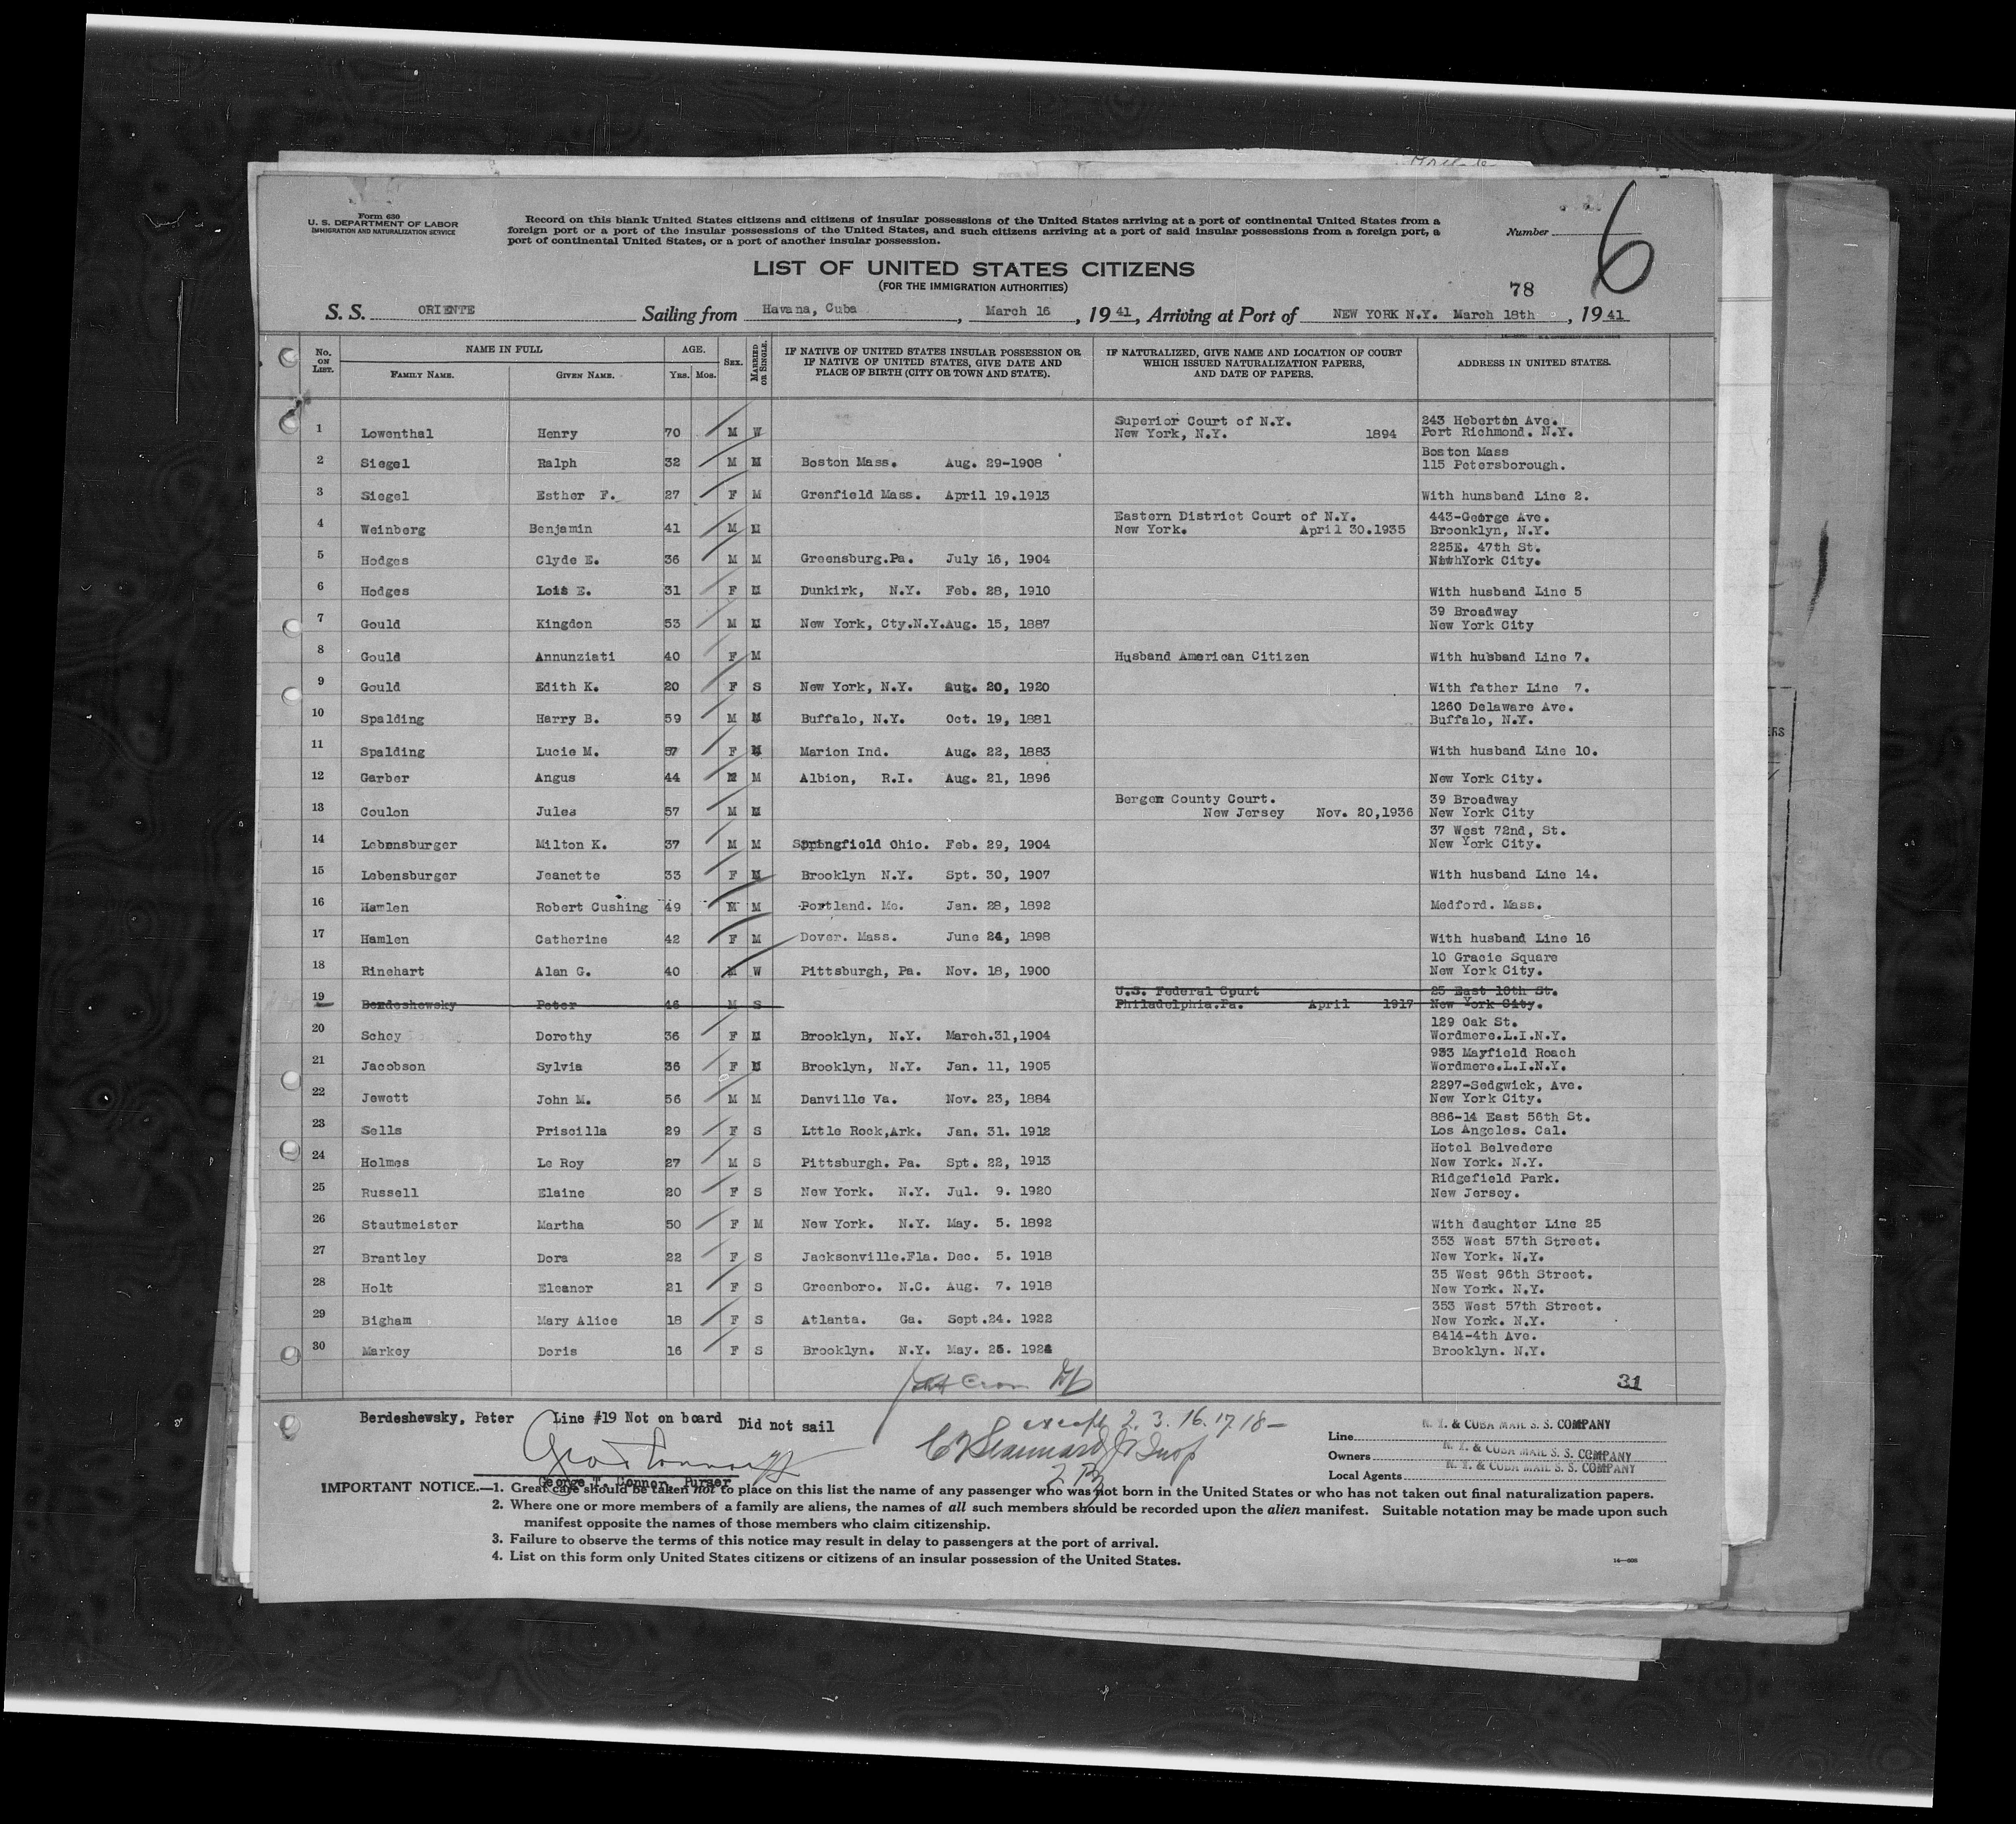 Form 630
U. S. DEPARTMENT OF LABOR
IMMIGRATION AND NATURALIZATION SERVICE
Record on this blank United States citizens and citizens of insular possessions of the United States arriving at a port of continental United States from a
foreign port or a port of the insular possessions of the United States, and such citizens arriving at a port of said insular possessions from a foreign port, a
port of continental United States, or a port of another insular possession.
Number
6
LIST OF UNITED STATES CITIZENS
(FOR THE IMMIGRATION AUTHORITIES)
78
S. S. ORIENTE Sailing from Havana, Cuba, March 16, 1941, Arriving at Port of NEW YORK N.Y. March 18th, 1941
No. ON LIST. NAME IN FULL FAMILY NAME. GIVEN NAME. AGE. YRS. MOS. SEX. MARRIED OR SINGLE. IF NATIVE OF UNITED STATES INSULAR POSSESSION OR IF NATIVE OF UNITED STATES, GIVE DATE AND PLACE OF BIRTH (CITY OR TOWN AND STATE). IF NATURALIZED, GIVE NAME AND LOCATION OF COURT WHICH ISSUED NATURALIZATION PAPERS, AND DATE OF PAPERS. ADDRESS IN UNITED STATES.
1 Lowenthal Henry 70 M W Superior Court of N.Y. New York, N.Y. 1894 243 Heberton Ave. Port Richmond. N.Y.
2 Siegel Ralph 32 M M Boston Mass. Aug. 29-1908 Boston Mass 115 Petersborough.
3 Siegel Esther F. 27 F M Grenfield Mass. April 19.1913 With hunsband Line 2.
4 Weinberg Benjamin 41 M M Eastern District Court of N.Y. New York. April 30.1935 443-George Ave. Broonklyn, N.Y.
5 Hodges Clyde E. 36 M M Greensburg.Pa. July 16, 1904 225E. 47th St. York City.
6 Hodges Lois E. 31 F M Dunkirk, N.Y. Feb. 28, 1910 With husband Line 5
7 Gould Kingdon 53 M M New York, Cty.N.Y.Aug. 15, 1887 39 Broadway New York City
8 Gould Annunziati 40 F M Husband American Citizen With husband Line 7.
9 Gould Edith K. 20 F S New York, N.Y. Aug. 20, 1920 With father Line 7.
10 Spalding Harry B. 59 M M Buffalo, N.Y. Oct. 19, 1881 1260 Delaware Ave. Buffalo, N.Y.
11 Spalding Lucie M. 57 F M Marion Ind. Aug. 22, 1883 With husband Line 10.
12 Garber Angus 44 M M Albion, R.I. Aug. 21, 1896 New York City.
13 Coulon Jules 57 M M Bergen County Court. New Jersey Nov. 20,1936 39 Broadway New York City
14 Lebensburger Milton K. 37 M M Springfield Ohio. Feb. 29, 1904 37 West 72nd, St. New York City.
15 Lebensburger Jeanette 33 F M Brooklyn N.Y. Spt. 30, 1907 With husband Line 14.
16 Hamlen Robert Cushing 49 M M Portland. Me. Jan. 28, 1892 Medford. Mass.
17 Hamlen Catherine 42 F M Dover. Mass. June 24, 1898 With husband Line 16
18 Rinehart Alan G. 40 M W Pittsburgh, Pa. Nov. 18, 1900 10 Gracie Square New York City.
19 Berdeshewsky Peter 46 M S U.S. Federal Court Philadelphia.Pa. April 1917 25 East 10th St. New York City.
20 Schey Dorothy 36 F M Brooklyn, N.Y. March.31,1904 129 Oak St. Wordmere.L.I.N.Y.
21 Jacobson Sylvia 36 F M Brooklyn, N.Y. Jan. 11, 1905 933 Mayfield Roach Wordmere.L.I.N.Y.
22 Jewett John M. 56 M M Danville Va. Nov. 23, 1884 2297-Sedgwick, Ave. New York City.
23 Sells Priscilla 29 F S Lttle Rock,Ark. Jan. 31. 1912 886-14 East 56th St. Los Angeles. Cal.
24 Holmes Le Roy 27 M S Pittsburgh. Pa. Spt. 22, 1913 Hotel Belvedere New York. N.Y.
25 Russell Elaine 20 F S New York. N.Y. Jul. 9. 1920 Ridgefield Park. New Jersey.
26 Stautmeister Martha 50 F M New York. N.Y. May. 5. 1892 With daughter Line 25
27 Brantley Dora 22 F S Jacksonville.Fla. Dec. 5. 1918 353 West 57th Street. New York. N.Y.
28 Holt Eleanor 21 F S Greenboro. N.C. Aug. 7. 1918 35 West 96th Street. New York. N.Y.
29 Bigham Mary Alice 18 F S Atlanta. Ga. Sept.24. 1922 353 West 57th Street. New York. N.Y.
30 Markey Doris 16 F S Brooklyn. N.Y. May. 1924 8414-4th Ave. Brooklyn. N.Y.
31
Berdeshewsky, Peter Line #19 Not on board Did not sail
except 2. 3. 16. 17 18-
George T. Connor, Purser
Line N. Y. & CUBA MAIL S. S. COMPANY
Owners N. Y. & CUBA MAIL S. S. COMPANY
Local Agents N. Y. & CUBA MAIL S. S. COMPANY
IMPORTANT NOTICE.—1. Great care should be taken not to place on this list the name of any passenger who was not born in the United States or who has not taken out final naturalization papers.
2. Where one or more members of a family are aliens, the names of all such members should be recorded upon the alien manifest. Suitable notation may be made upon such
manifest opposite the names of those members who claim citizenship.
3. Failure to observe the terms of this notice may result in delay to passengers at the port of arrival.
4. List on this form only United States citizens or citizens of an insular possession of the United States.